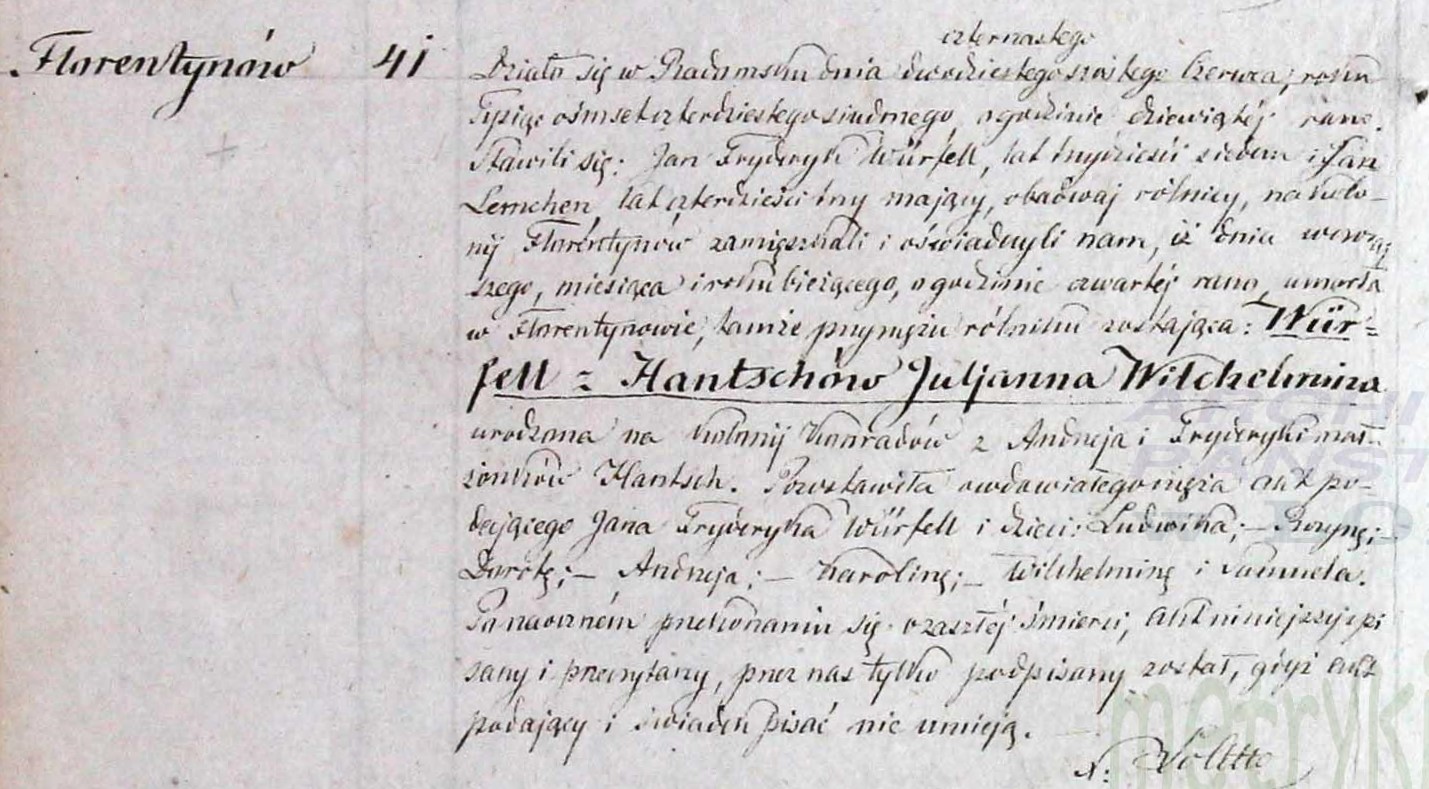 czternastego
Florentynów 41 Działo się w Radomsku dnia dwudziestego szóstego Czerwca, roku
Tysiąc ośmset czterdziestego siudmego, o godzinie dziewiątéj rano.
Stawili się: Jan Fryderyk Würfell, lat trzydzieści siedem i Jan
Lemchen, lat czterdzieści trzy mający, obadwaj rólnicy, na kolo-
nij Florentynow zamięszkali i oświadczyli nam, iż dnia wczoraj
szego, miesiąca i roku bieżącego, o godzinie czwartéj rano, umarła
w Florentynowie, tamże przy mężu rólniku zostająca: Wür=
fell z Hantschów Juljanna Wilchelmina
urodzona na kolonij Konradów z Andrzeja i Fryderyki mał-
żonków Hantsch. Pozostawiła owdowiałego męża akt po-
dającego Jana Fryderyka Würfell i dzieci: Ludwika; – Rozynę; –
Dorotę; – Andrzeja; – Karolinę; – Wilchelminę i Samuela.
Po naoczném przekonaniu się o zaszłéj śmierci, akt niniejszy spi
sany i przeczytany, przez nas tylko podpisany został, gdyż akt
podający i świadek pisać nie umieją.
ARCHI
PAŃST
w ŁO
metryki